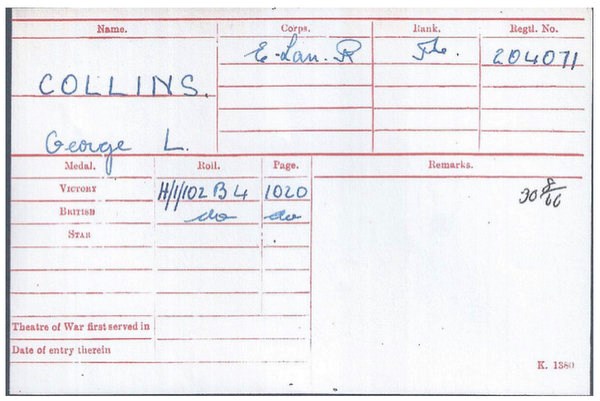 Name. Corps. Rank. Regtl. No.
E. Lan. R Pte. 204071
COLLINS.
George L.
Medal. Roll. Page. Remarks.
VICTORY H/1/102 B4 1020
BRITISH do do
STAR
Theatre of War first served in
Date of entry therein
K. 1380